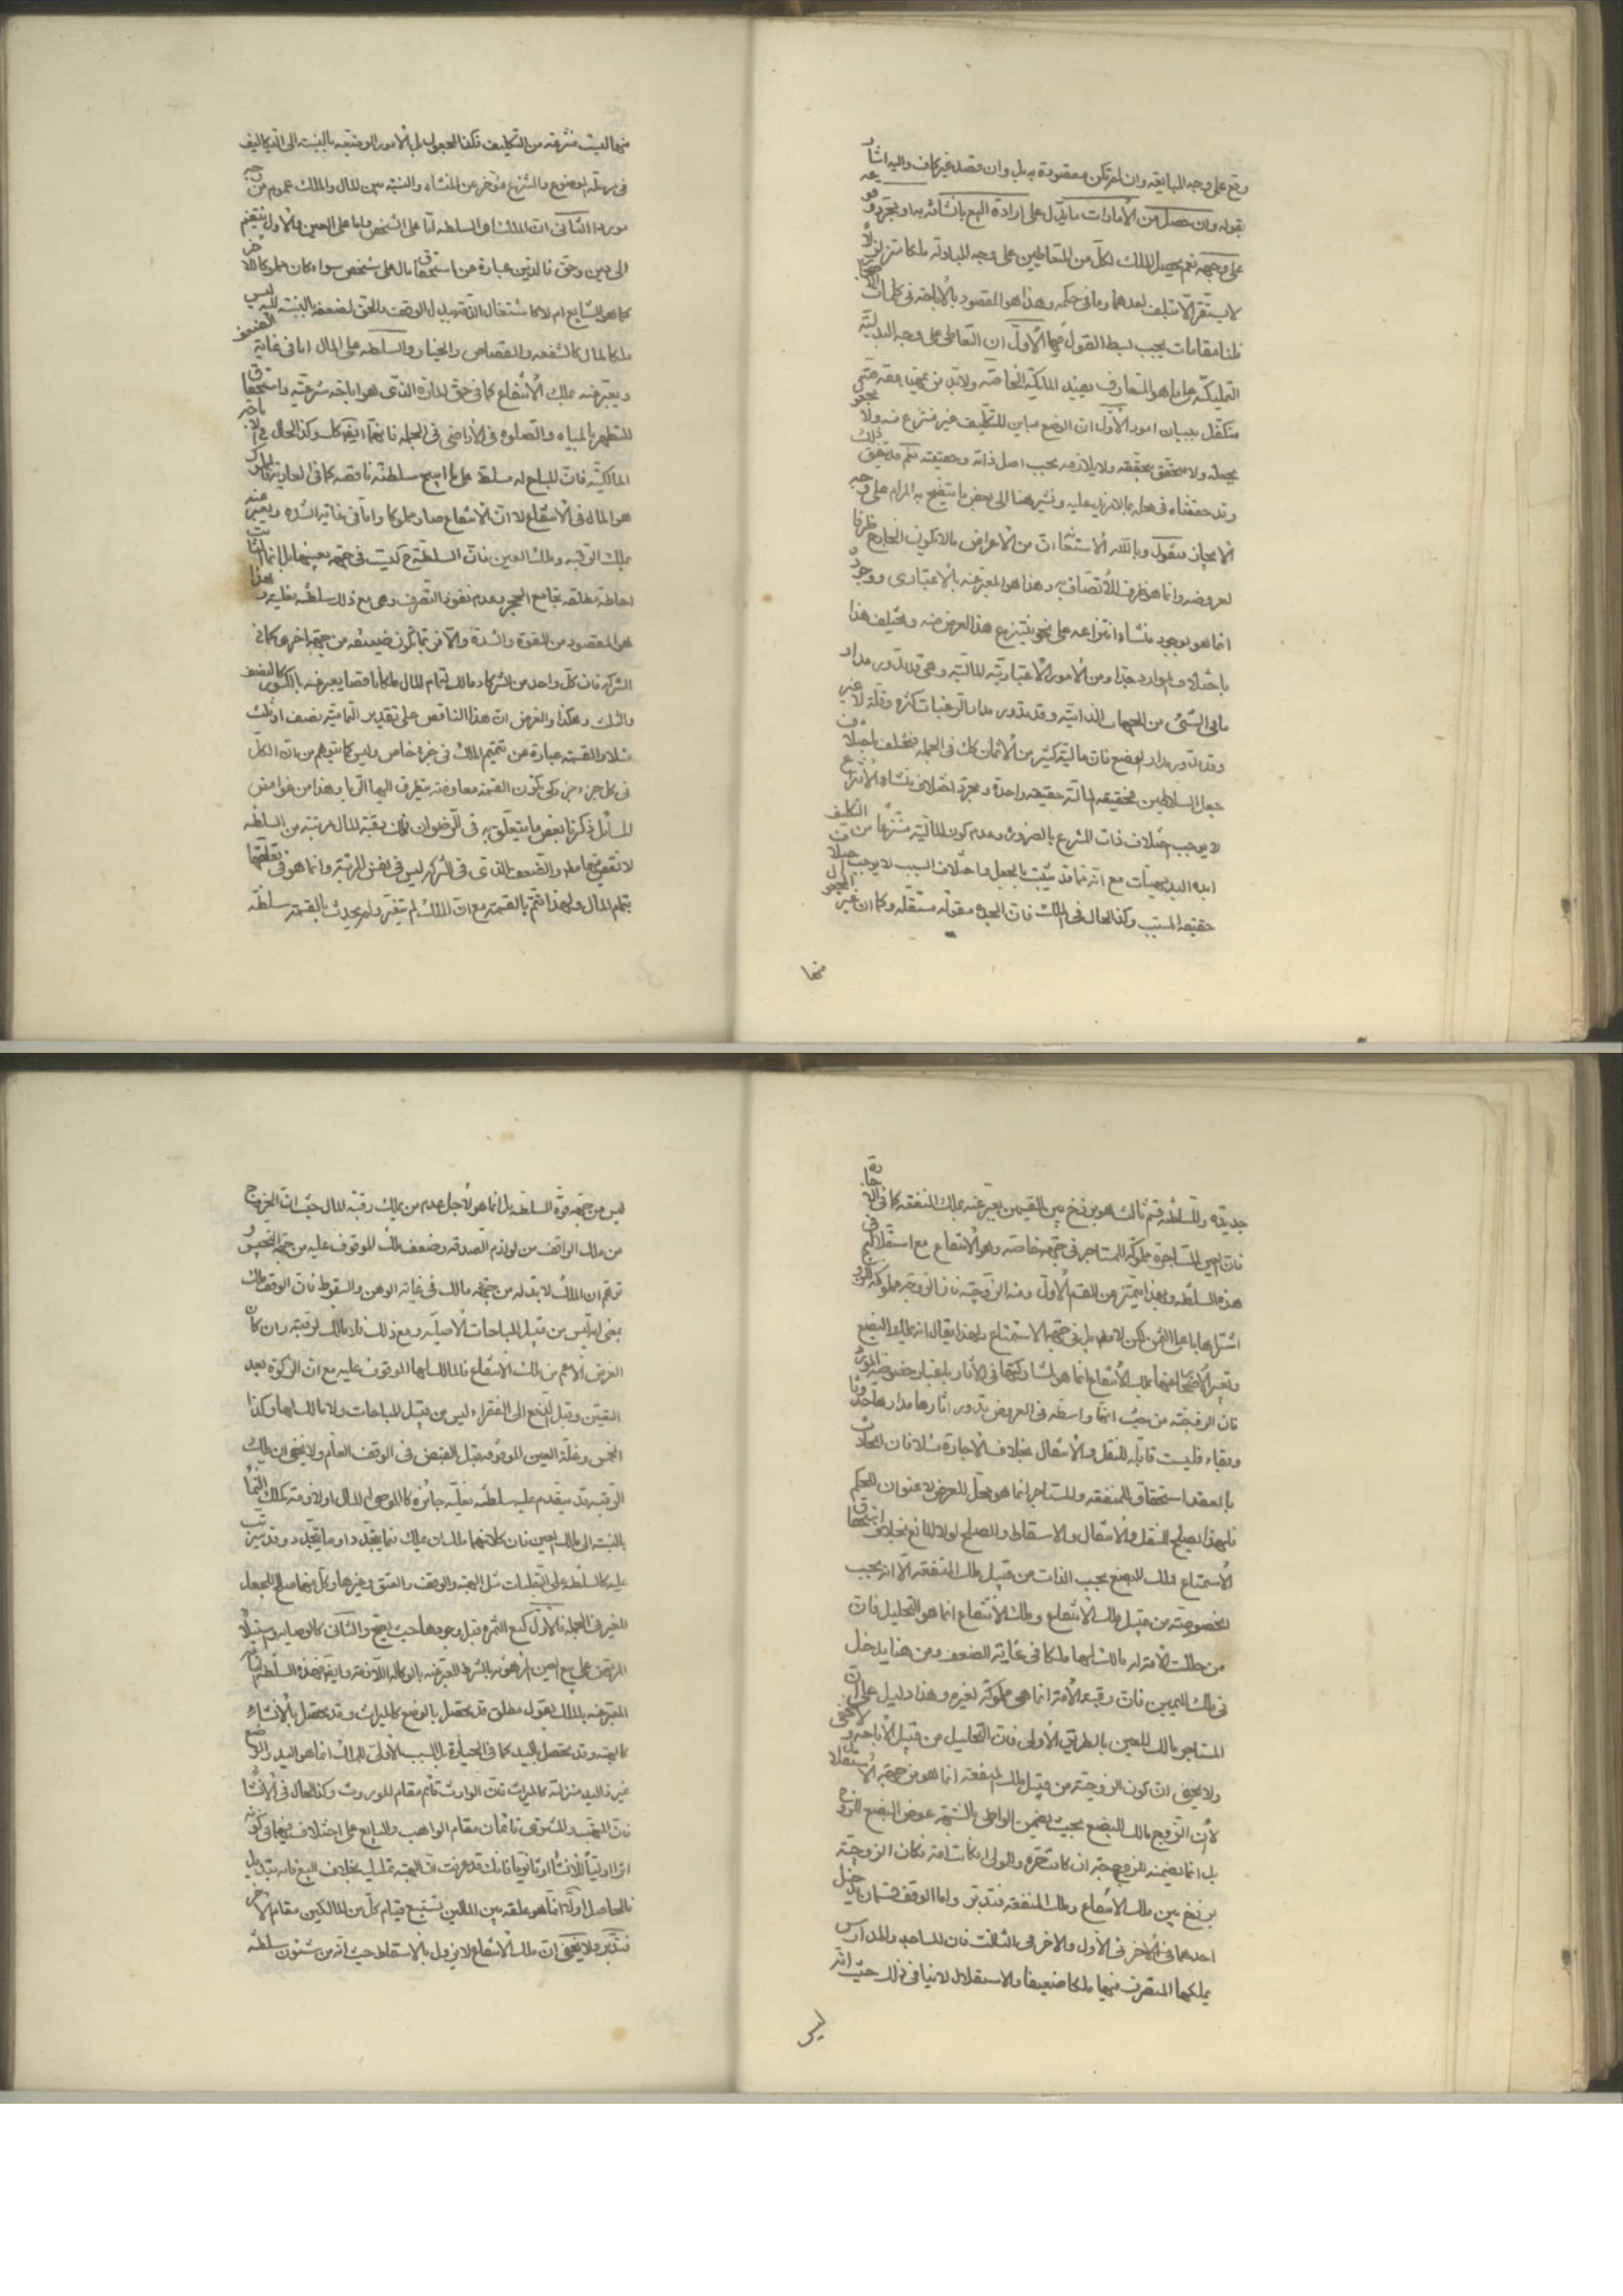 وقع على وجه المبايعه وان لم تكن مقصودة به بل وان قصد غير كاف واليه اشار
بقوله وان حصل من الأمارات ما يدل على ارادة البيع بانشائه به او بمجرد وقوعه
على وجهه نعم يحصل الملك لكل من المتعاطيين على وجه المبادلة ملكا متزلزلا
لا يستقر الا بتلف احدهما وما في حكمه وهذا هو المقصود بالاباحة في كلمات الاصحاب
فلنا مقامات يجب بسط القول فيها الأول ان التعاطي على وجه البدلية
التمليكية على ما هو المتعارف يفيد الملكية الخاصة ولا بد من تمهيد مقدمة
متكفل ببيان امور الأول ان الوضع مباين للتكليف غير منتزع منه ولا مجعول
بجعله ولا متحقق بتحققه ولا يلازمه بحسب اصل ذاته وحقيقته
وقد حققناه في محله بما لا مزيد عليه ونشير هنا الى بعض ما يتضح به المرام على وجه
الايجاز فنقول وبالله الاستعانة ان من الأعراض ما لا يكون الخارج ظرفا
لعروضه وانما هو ظرف للأتصاف به وهذا هو المعبر عنه بالأعتبارى ووجوده
انما هو بوجود منشاء انتزاعه على نحو ينتزع هذا العرض منه ويختلف هذا
باختلاف الموارد جدا ومن الأمور الأعتبارية المالية وهي قد تدور مدار
ما في الشئ من الجهات الذاتية وقد تدور مدار الرغبات كثرة وقلة لا غير
وقد تدور مدار الوضع فان مالية كثير من الأثمان كك في الجملة فتختلف باختلاف
جعل السلاطين فحقيقه المالية حقيقة واحدة ومجرد اختلاف منشاء الأنتزاع
لا يوجب اختلاف ذات المنتزع بالضرورة وعدم كون المالية منتزعا من التكليف
ابده البديهيات مع انه مما قد يثبت بالجعل واختلاف السبب لا يوجب اختلاف
حقيقة المسبب وكذا الحال في الملك فان الجدة مقولة مستقله وكما ان غير المجعول
منها
منها ليست منتزعه من التكليف فكذا المجعول بل الأمور الوضعيه بالنسبة الى التكاليف
في مرتبة الموضوع والمنتزع مؤخر عن المنشاء والنسبة بين المال والملك عموم من وجه
موردا الثاني ان الملك هى السلطه اما على الشخص واما على العين والأول ينقسم
الى دين وحق فالدين عبارة عن استحقاق مال على شخص سواء كان مملوكا للآخر
كما هو الشايع ام لا كاشتغال الذمة ببدل الوقف والحق لضعفه بالنسبة اليه ليس
ملكا لمال كالشفعه والقصاص والخيار والسلطه على المال اما في غاية الضعف
ويعبر عنه بملك الأنتفاع كما في حق المارة الذى هو اباحة شرعية واستحقاق
للتطهر بالمياه والصلوة في الأراضى في الجملة فانهما ايضا كك وكذا الحال في الاباحة
المالكية فان المباح له مسلط على ما ابيح سلطنة ناقصه كما في العارية فالمملوك
هو المال في الأنتفاع لا ان الأنتفاع صار مملوكا واما في غاية الشدة ويعبر عنه
بملك الرقبه وملك العين فان السلطنة ح ليست في جهة بعينها بل انما
احاطة مطلقه تجامع الحجر وعدم نفوذ التصرف وهى مع ذلك سلطنه فعليه وهذا
هو المقصود من القوة والشدة والا فربما تكون ضعيفه من جهة اخرى كما في
الشركه فان كل واحد من الشركاء مالك لتمام المال ملكا ناقصا يعبر عنه بالكسور كالنصف
والثلث وهكذا والغرض ان هذا الناقص على تقدير التمامية نصف او ثلث
مثلا والقسمة عبارة عن تتميم الملك في جزء خاص وليس كما يتوهم من ان الكل
في كل جزء جزء كى تكون القسمة معاوضة يتطرق اليها الربا وهذا من غوامض
المسائل ذكرنا بعض ما يتعلق به في الرضوان فملك رقبة المال مرتبة من السلطه
لا نقص فيها مطلقا والضعف الذى في الشركه ليس في نفس المرتبة وانما هو في تعلقها
بتمام المال ولهذا تتم بالقسمة مع ان الملك لم يتغير ولم يحدث بالقسمة سلطنه
جديده وللسلطنه قسم ثالث هو برزخ بين القسمين يعبر عنه بملك المنفعه كما في الاجارة
فان العين المستاجرة مملوكه للمستاجر في جهة خاصه وهو الأنتفاع مع استقلاله في
هذه السلطنه وبهذا يتميز عن القسم الأول ومنه الزوجية فان الزوجة مملوكه للزوج
اشتراها باغلى الثمن لكن لا مطلقا بل في جهة الاستمتاع ولهذا يقال انه مالك البضع
وتعبير الأصحاب عنها بملك الأنتفاع انما هو لمشاركتها في الأثار باعتبار خصوصية المورد
فان الزوجيه من حيث انها واسطه في العروض تدور اثارها مدارها حدوثا
وبقاء فليست قابله للنقل والأنتقال بخلاف الأجارة مثلا فان الحادث
بالعقد استحقاق المنفعه والمستاجر انما هو محل للعرض لا عنوان للحكم
فلهذا يصلح للنقل والأنتقال والاسقاط والصلح لولا المانع بخلاف استحقاق
الأستمتاع فملك البضع بحسب الذات من قبيل ملك المنفعه الا انه بحسب
الخصوصية من قبيل ملك الأنتفاع وملك الأنتفاع انما هو التحليل فان
من حللت الأمة له مالك لها ملكا في غاية الضعف ومن هنا يدخل
في ملك اليمين فان رقبة الأمة انما هي مملوكة لغيره وهذا دليل على ان
المستاجر مالك للعين بالطريق الأولى فان التحليل من قبيل الأباحه ولا يخفى
ولا يخفى ان كون الزوجية من قبيل ملك المنفعه انما هو من جهة الأستقلال
لأن الزوج مالك للبضع بحيث يضمن الواطى بالشبهه عوض البضع للزوج
بل انما يضمنه للزوجة ان كانت حرة والمولى ان كانت امة فكان الزوجية
برزخ بين ملك الأنتفاع وملك المنفعه فتدبر واما الوقف فقسمان يدخل
احدهما في الأول والاخر في الثالث فان المساجد والمدارس
يملكها المتصرف فيها ملكا ضعيفا والاستقلال لا ينافي ذلك حيث انه
ليس
ليس من جهة قوة السلطه بل انما هو لأجل عدم من يملك رقبة المال حيث ان الخروج
من ملك الواقف من لوازم الصدقه وضعف ملك الموقوف عليه من جهة الحبس
توهم ان الملك لا بد له من جهة مالك في غاية الوهن والسقوط فان الوقف ملك
بمعنى انه ليس من قبيل المباحات الأصلية ومع ذلك فلا مالك لرقبته وان كان
الغرض الأعم من ملك الأنتفاع فالمالك لها الموقوف عليه مع ان الزكوة بعد
التعين وقبل الدفع الى الفقراء ليس من قبيل المباحات ولا مالك لها وكذا
الخمس وغلة العين الموقوفه قبل القبض في الوقف العام ولا يخفى ان ملك
الرقبه قد يتقدم عليه سلطنه فعليه جائزه كالموصى له المال اولازمة كملك النماء
بالنسبة الى مالك العين فان كلا منهما ملك ان يملك نماء يتجدد او ما يتجدد وقد يترتب
عليه كالسلطنه على التقلبات مثل الهبة والوقف والعتق وغيرها وكل منهما صالح للجعل
للغير في الجملة فالأول كبيع الثمرة قبل وجودها حيث يصح والثاني كالوصاية
المرتهن على بيع العين المرهونه بالشرط المعبر عنه بالوكاله اللازمة
المعبر عنه بالملك بقول مطلق قد يحصل بالوضع كالميراث وقد يحصل بالأنشاء
كالهبة وقد يحصل باليد كما في الحيازة بل السبب الأولى للملك انما هو اليد والوضع
غير ذاليد منزلته كالميراث فان الوارث قائم مقام الموروث وكذا الحال في الأنشاء
فان المتهب والمشترى قائمان مقام الواهب والبايع على اختلاف فيهما في كونه
اثرا اوليا للأنشاء او ثانويا فانك قد عرفت ان الهبة تمليك بخلاف البيع فانه تبديل
فالحاصل اولا انما هو علقه بين المالين تستتبع قيام كل من المالكين مقام الآخر
فتدبر ولا يخفى ان ملك الأنتفاع لا يزول بالأسقاط حيث انه من شئون سلطنه